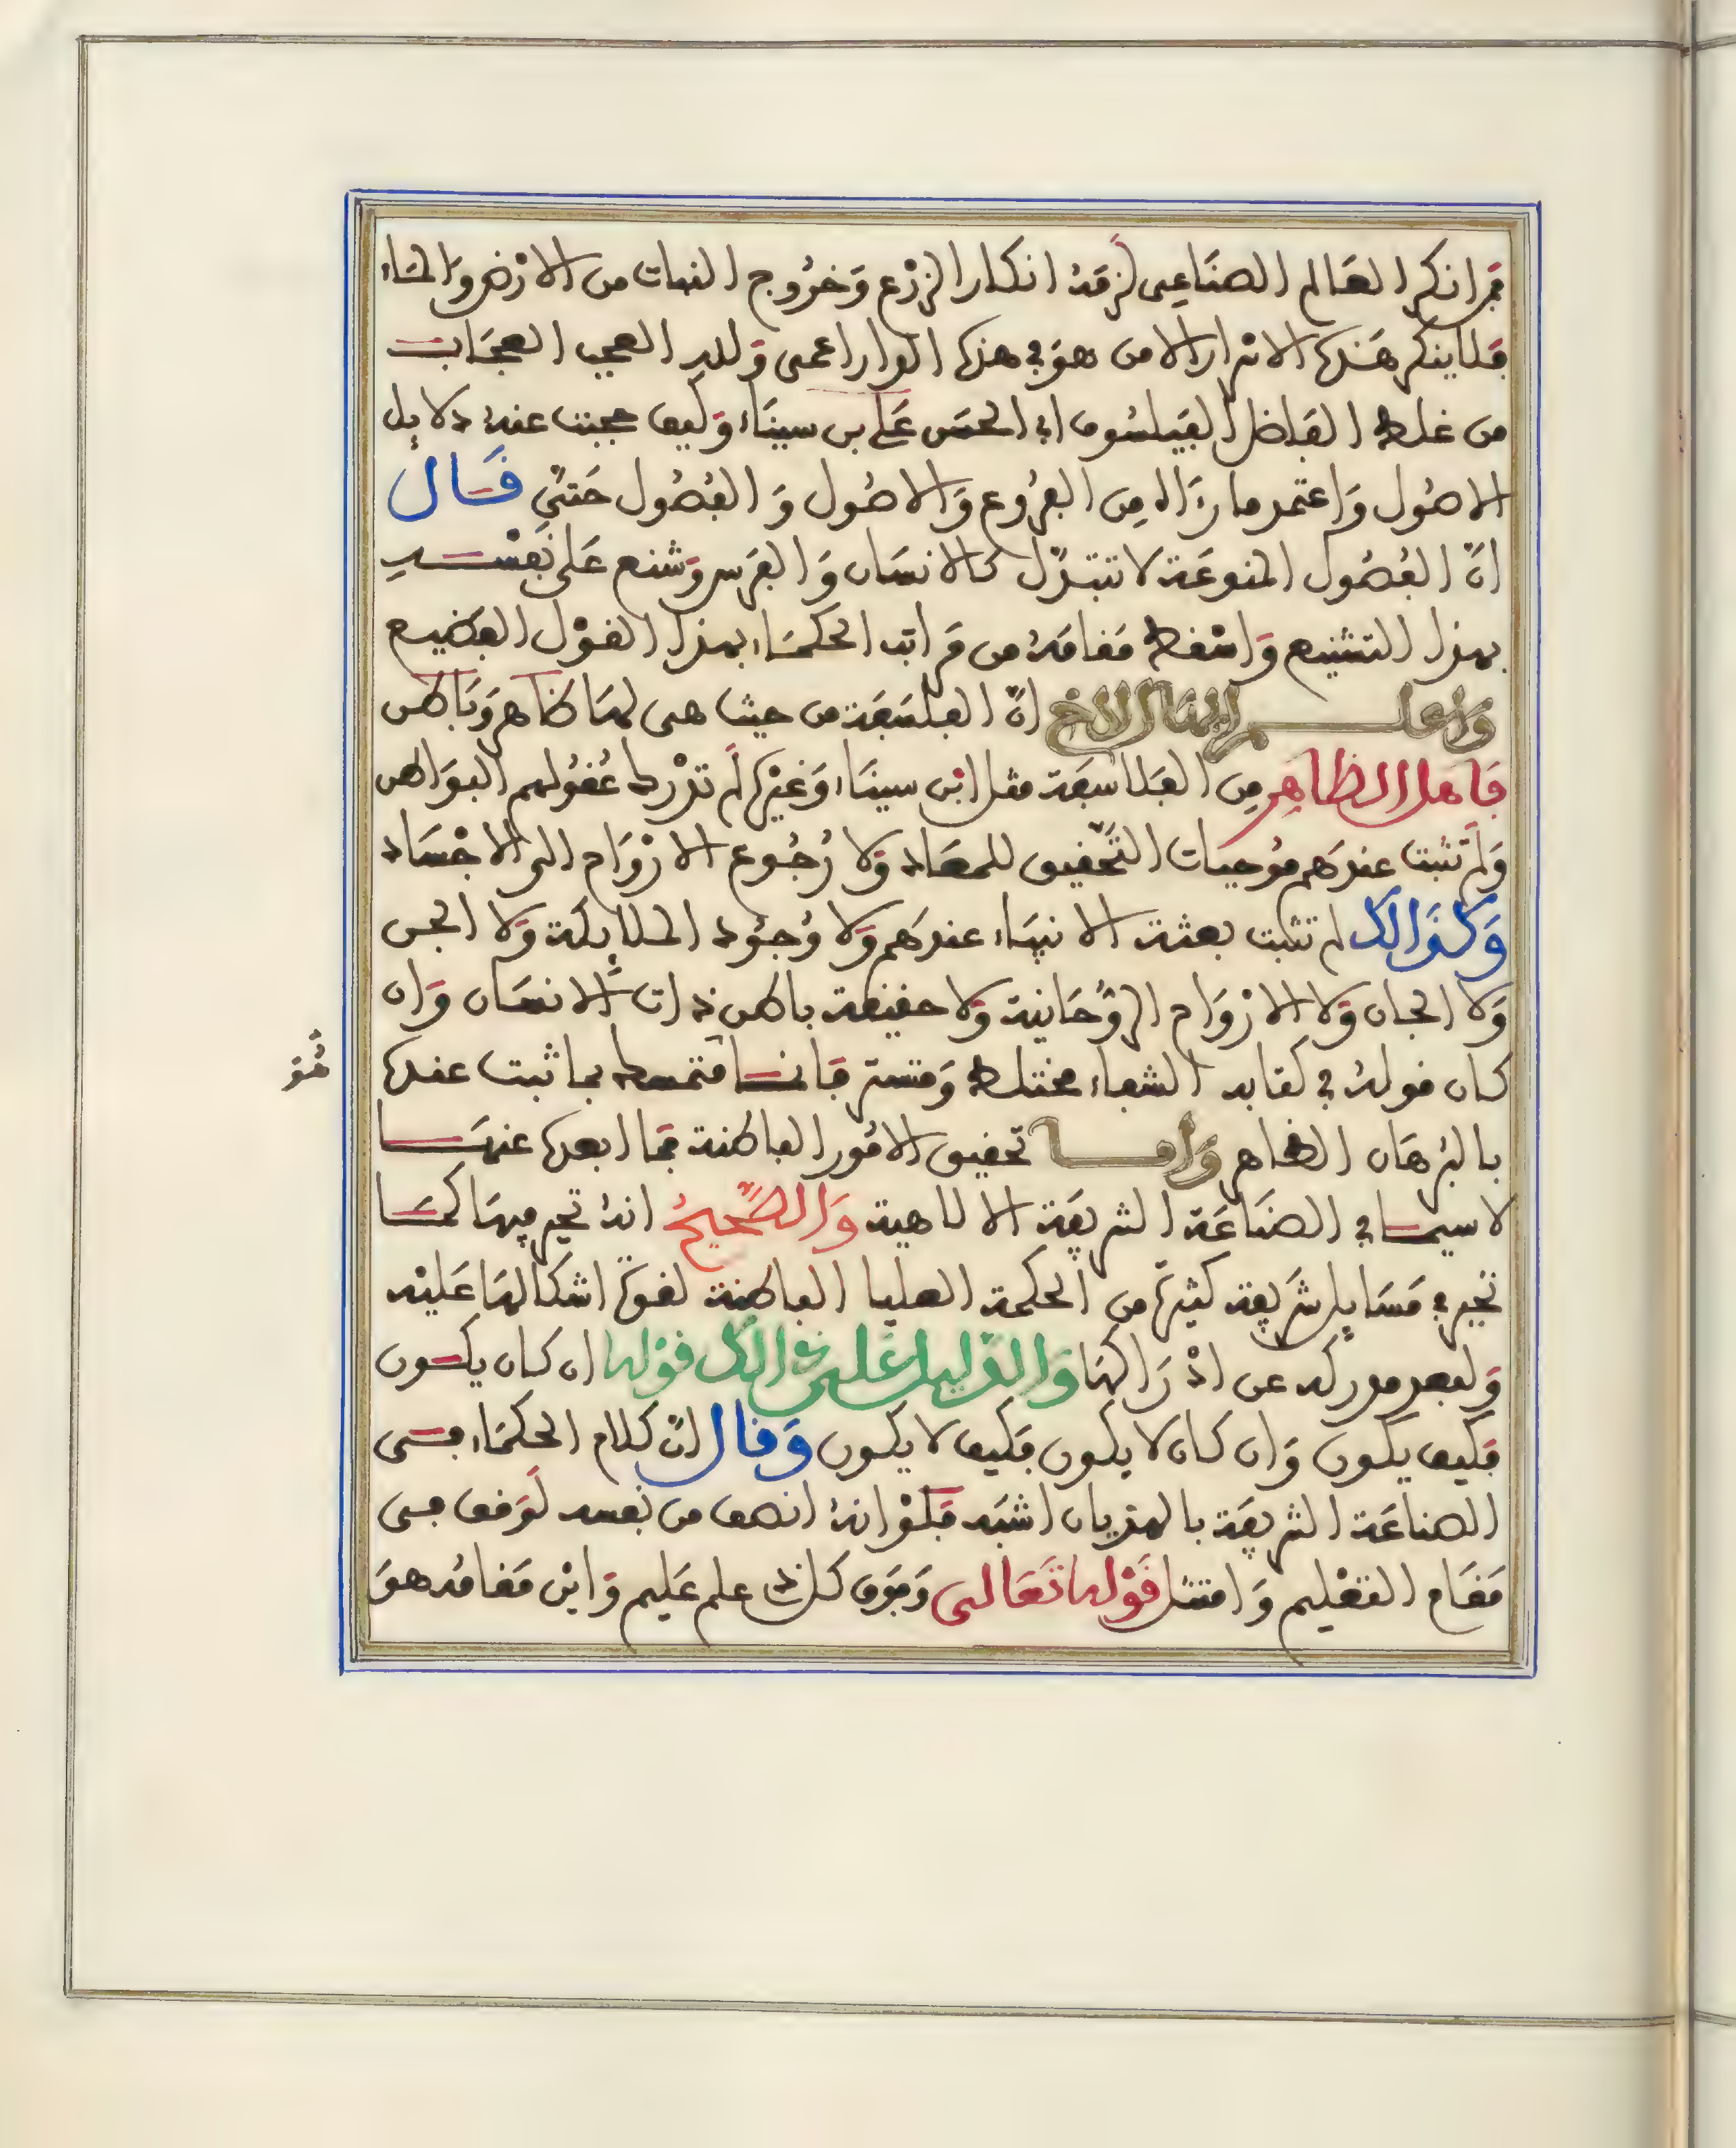 فمن انكر العالم الصناعي لزمه انكار الزرع وخروج النبات من الارض والماء
فلا ينكر هذه الاسرار الا من هو في هذه الدار اعمى ولله العجب العجاب
من غلط الفاضل الفيلسوف ابي الحسن علي بن سيناء وكيف حجبت عنه دلايل
الاصول واعتمد ما رءاه من الفروع والاصول والفصول حتى قال
ان الفصول المنوعة لا تتبدل كالانسان والفرس وشنع على نفسه
بهذا التشنيع واسقط مقامه من مراتب الحكماء بهذا القول الفضيع
واعلم ايها الاخ ان الفلسفة من حيث هي لها ظاهر وباطن
فاهل الظاهر من الفلاسفة مثل ابن سيناء وغيره لم تدرك عقولهم البواطن
ولم تثبت عندهم موجبات التحقيق للمعاد ولا رجوع الارواح الى الاجساد
وكذالك لم تثبت بعثة الانبياء عندهم ولا وجود الملايكة ولا الجن
ولا الجان ولا الارواح الروحانية ولا حقيقة باطن ذات الانسان وان
كان قوله في كتابه الشفاء مختلط ومستر فانه متمسك بما ثبت عنده
بالبرهان الظاهر واما تحقيق الامور الباطنة فما ابعده عنها
لا سيما في الصناعة الشريفة الالاهية والصحيح انه تحير فيها كما
تحير في مسايل شريفة كثيرة من الحكمة العليا الباطنة لقوة اشكالها عليه
ولبعد مدركه عن ادراكها والدليل على ذالك قوله ان كان يكون
فكيف يكون وان كان لا يكون فكيف لا يكون وقال ان كلام الحكماء في
الصناعة الشريفة بالهذيان اشبه فلو انه انصف من نفسه لوقف في
مقام التعليم وامتثل قوله تعالى وفوق كل ذي علم عليم واين مقامه هو